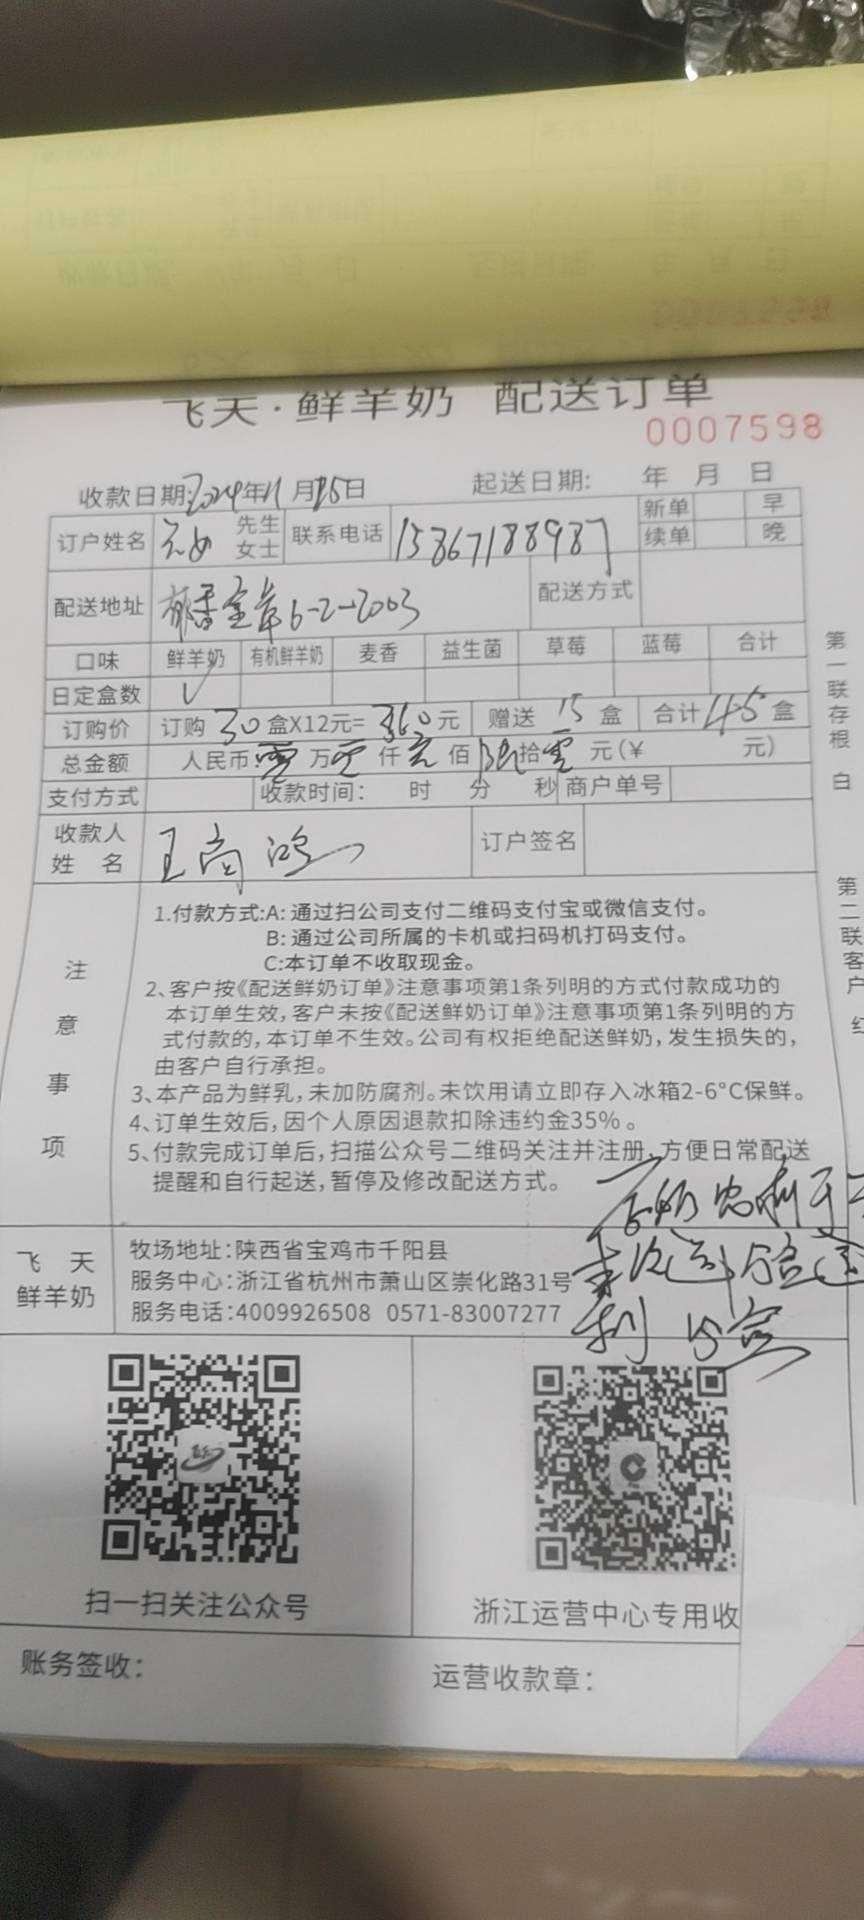 飞天·鲜羊奶 配送订单
0007598
收款日期:2024年11月25日 起送日期: 年 月 日
订户姓名 先生 女士 联系电话 15867188987 新单 早
续单 晚
配送地址 6-2-2003 配送方式
口味 鲜羊奶 有机鲜羊奶 麦香 益生菌 草莓 蓝莓 合计
日定盒数 √
订购价 订购 30 盒X12元= 360 元 赠送 15 盒 合计 45 盒
总金额 人民币: 零 万 零 仟 叁 佰 陆 拾 零 元(¥ 元)
支付方式 收款时间: 时 分 秒 商户单号
收款人
姓 名 王尚鸿 订户签名
注意事项
1.付款方式:A: 通过扫公司支付二维码支付宝或微信支付。
B: 通过公司所属的卡机或扫码机打码支付。
C:本订单不收取现金。
2、客户按《配送鲜奶订单》注意事项第1条列明的方式付款成功的
本订单生效,客户未按《配送鲜奶订单》注意事项第1条列明的方
式付款的,本订单不生效。公司有权拒绝配送鲜奶,发生损失的,
由客户自行承担。
3、本产品为鲜乳,未加防腐剂。未饮用请立即存入冰箱2-6°C保鲜。
4、订单生效后,因个人原因退款扣除违约金35%。
5、付款完成订单后,扫描公众号二维码关注并注册,方便日常配送
提醒和自行起送,暂停及修改配送方式。
飞 天
鲜羊奶
牧场地址:陕西省宝鸡市千阳县
服务中心:浙江省杭州市萧山区崇化路31号
服务电话:4009926508 0571-83007277
15盒
扫一扫关注公众号
浙江运营中心专用收
账务签收:
运营收款章:
第一联存根 白
第二联客户 红